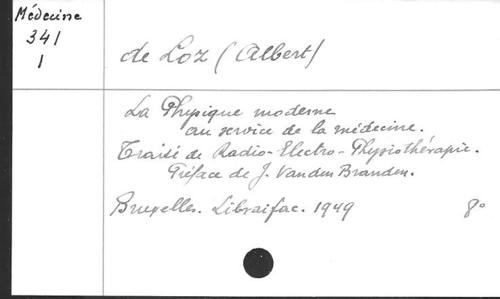 Médecine
341
1
de Loz (Albert)
La Physique moderne
au service de la médecine.
Traité de Radio-Electro-Physiothérapie.
Préface de J. Vanden Branden.
Bruxelles. Libraifac. 1949 8°